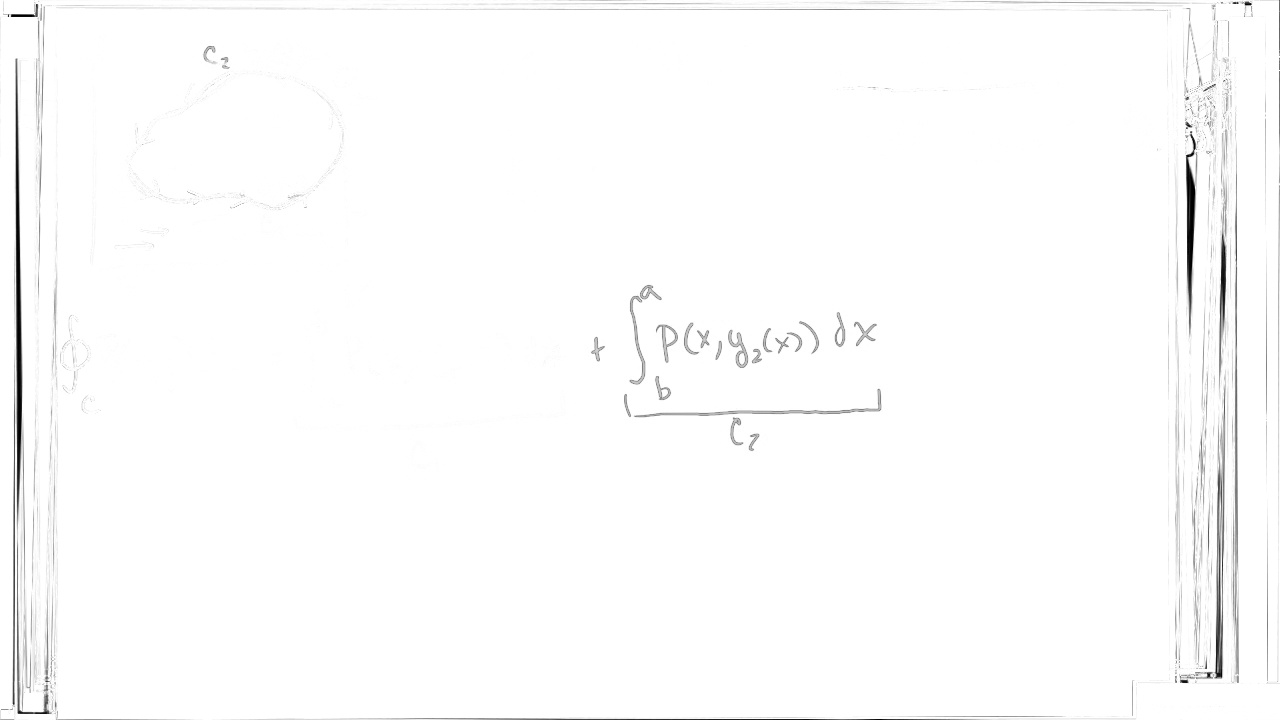 C₂
+ ∫_b^a P(x, y₂(x)) dx
C₂